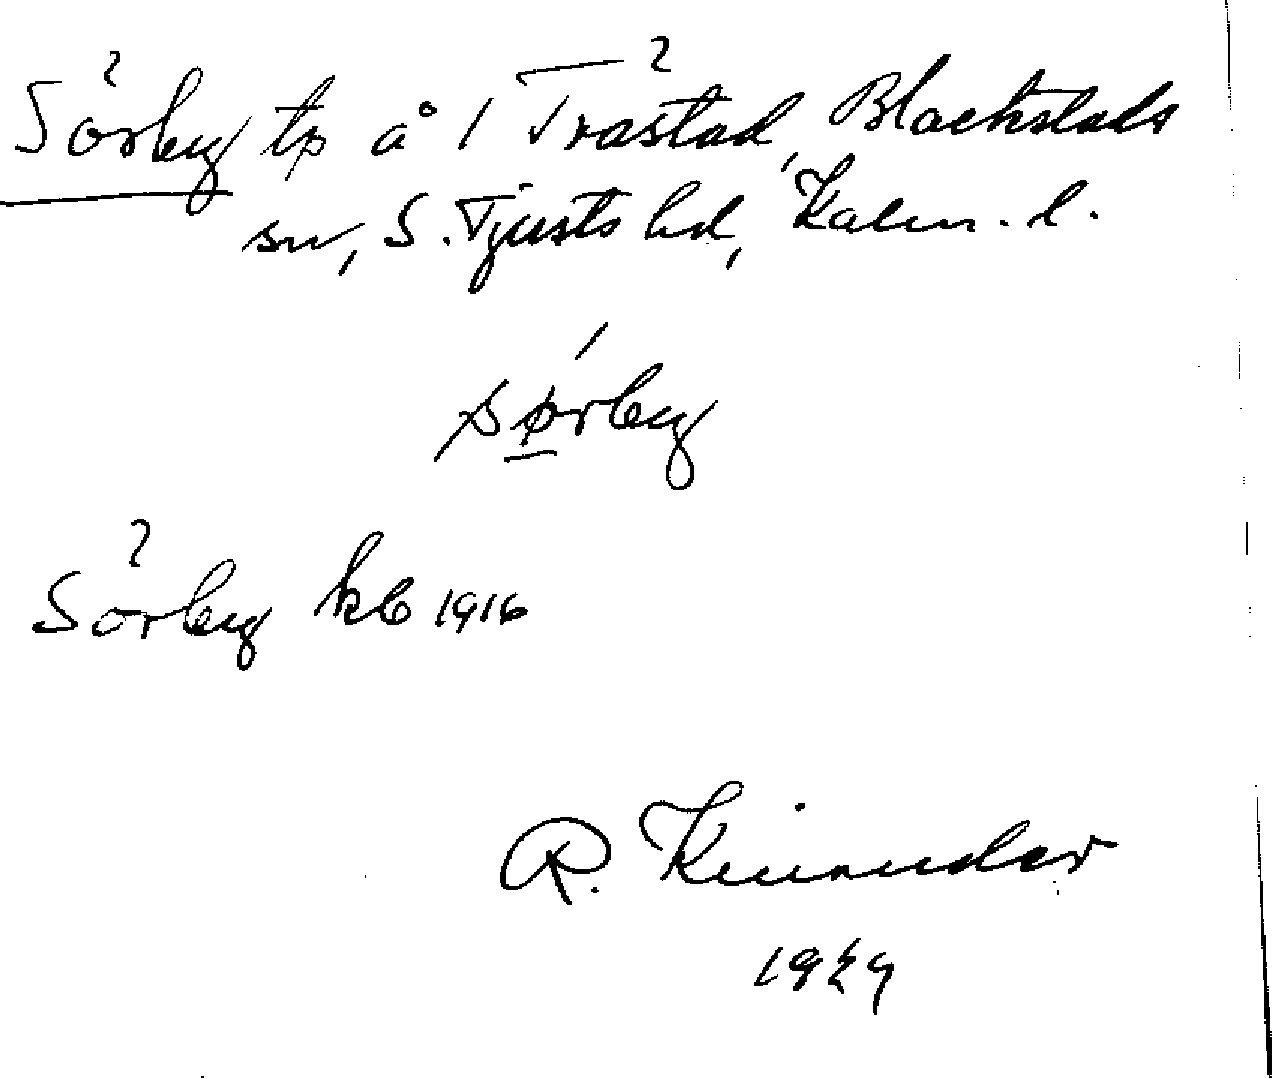 Sörby tp å 1 Tråstad, Blackstads
sn, S. Tjusts hd, Kalm. l.
sørby
Sörby kb 1916
R. Kinander
1929